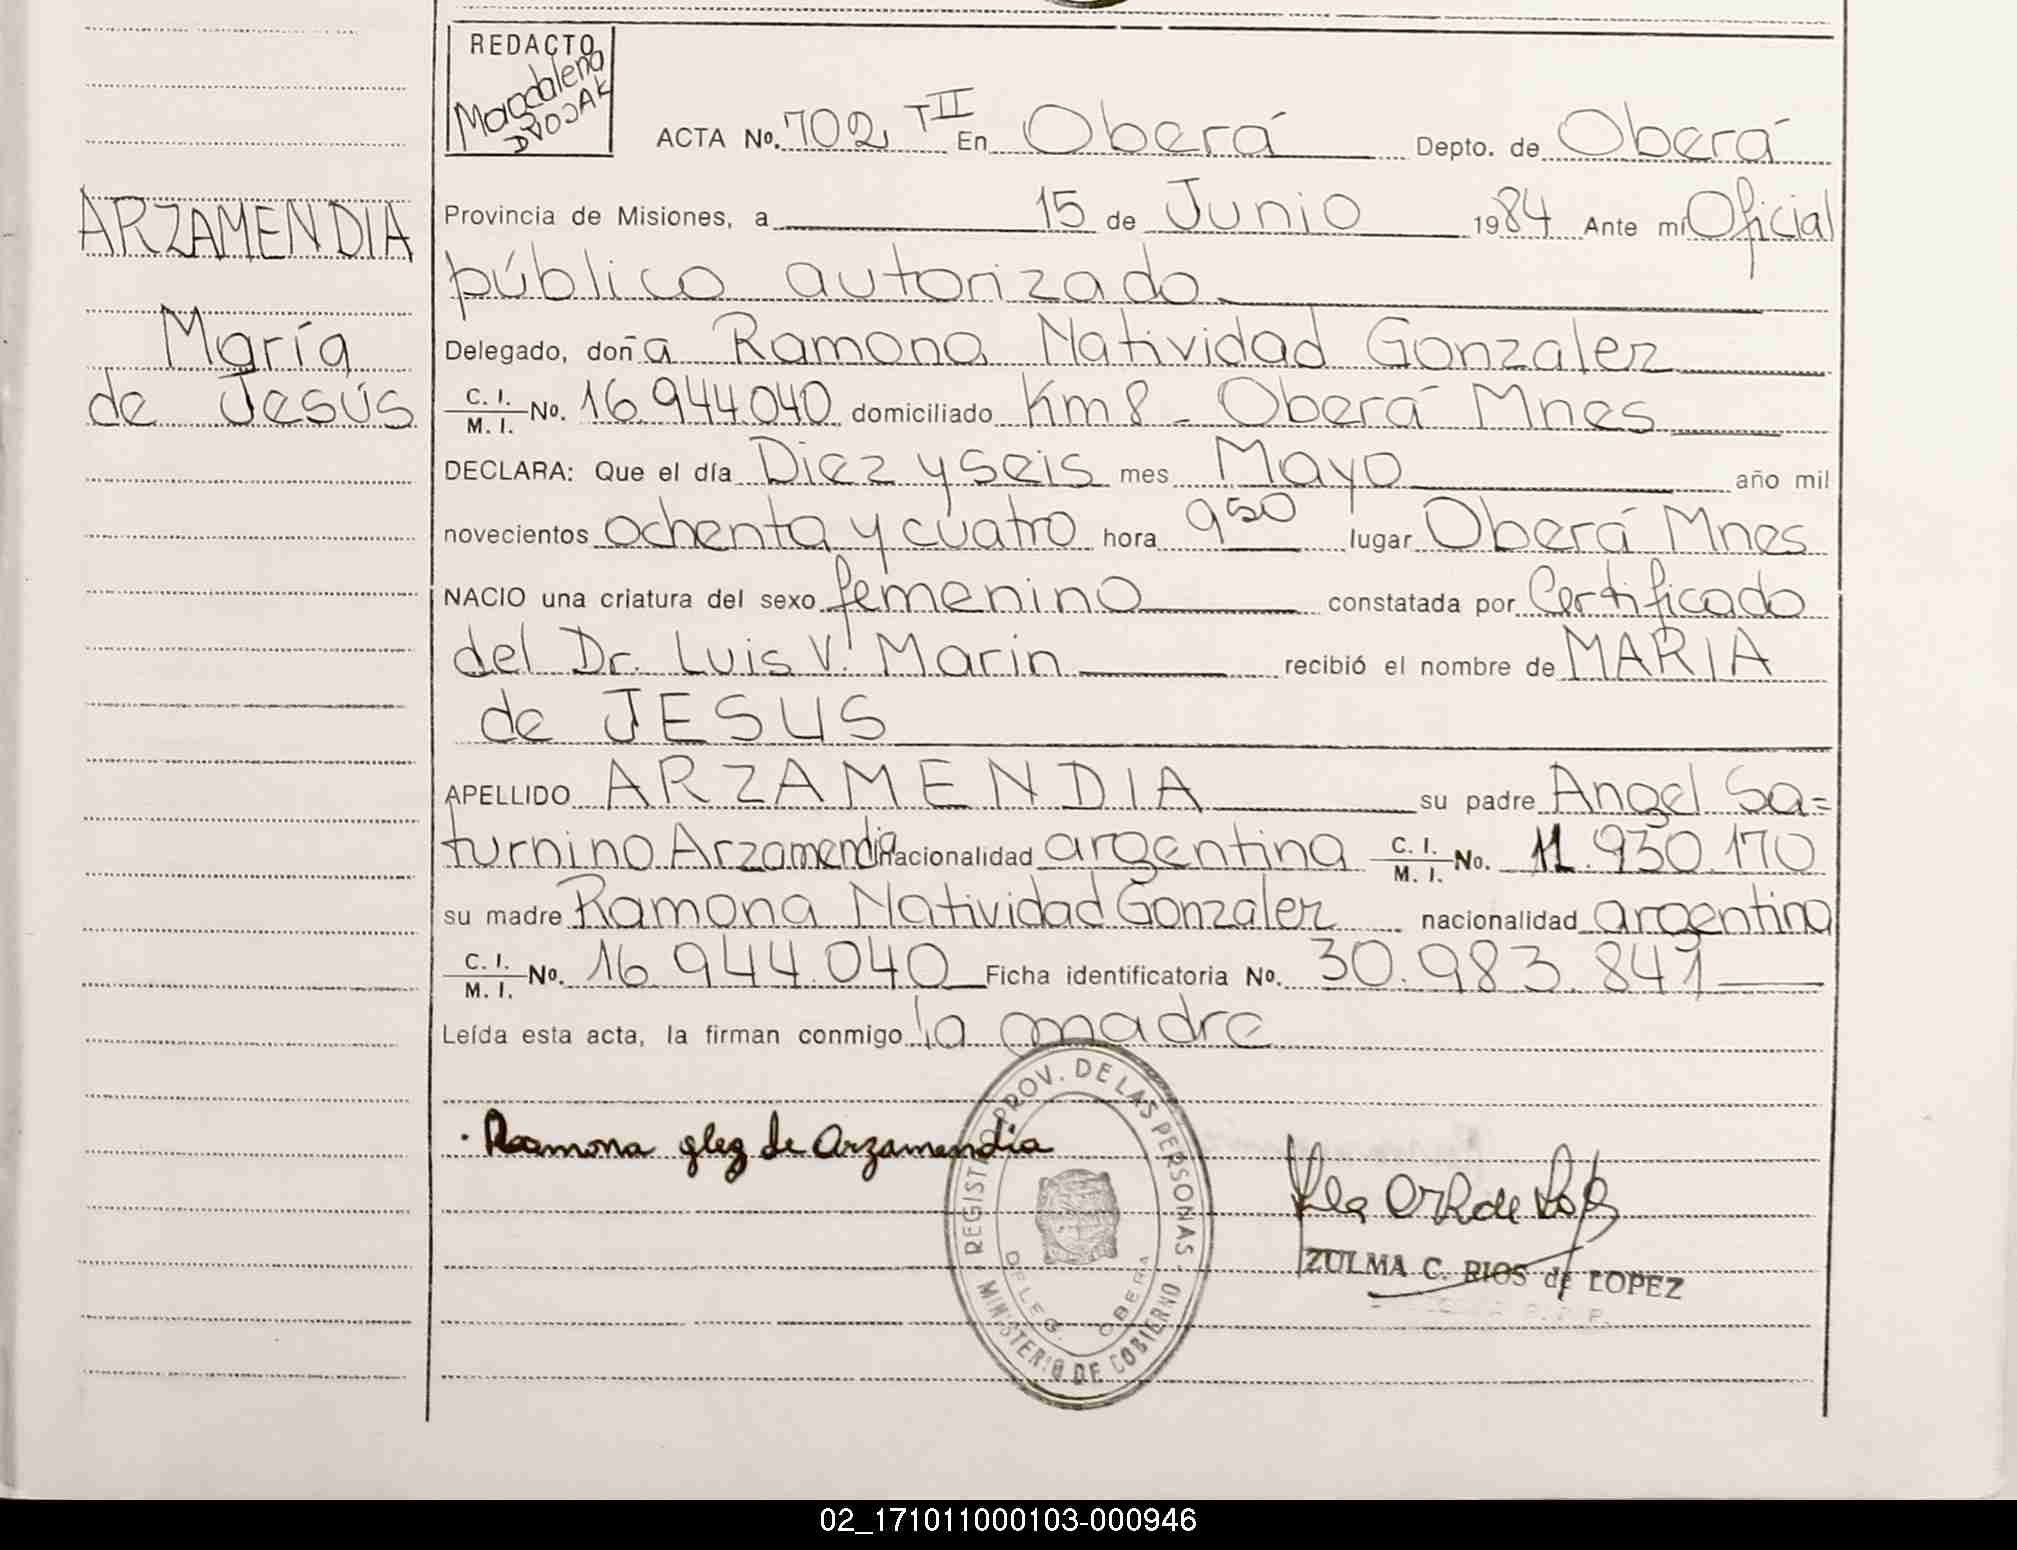 REDACTO
Magdalena
DVOJAK
ACTA No. 702 T II En Oberá Depto. de Oberá
ARZAMENDIA
María
de Jesús
Provincia de Misiones, a 15 de Junio 1984 Ante mí Oficial
público autorizado
Delegado, doña Ramona Natividad Gonzalez
C. I. / M. I. No. 16.944.040 domiciliado Km 8 - Oberá Mnes
DECLARA: Que el día Diez y seis mes Mayo año mil
novecientos ochenta y cuatro hora 9 50 lugar Oberá Mnes
NACIO una criatura del sexo femenino constatada por Certificado
del Dr. Luis V. Marin recibió el nombre de MARIA
de JESUS
APELLIDO ARZAMENDIA su padre Angel Sa=
turnino Arzamendia nacionalidad argentina C. I. / M. I. No. 11.930.170
su madre Ramona Natividad Gonzalez nacionalidad argentina
C. I. / M. I. No. 16.944.040 Ficha identificatoria No. 30.983.841
Leída esta acta, la firman conmigo la madre
Ramona glez de Arzamendia
REGISTRO PROV. DE LAS PERSONAS
MINISTERIO DE GOBIERNO
DELEG. OBERA
ZULMA C. RIOS de LOPEZ
02_171011000103-000946